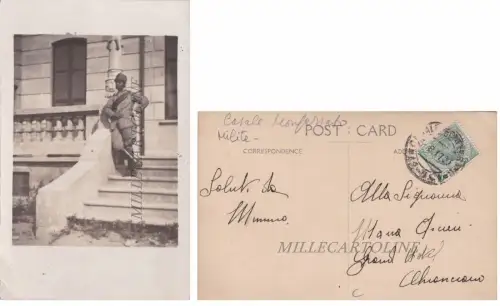 MILLECARTOLINE
Casale Monferrato
Milite -
POST CARD
CORRESPONDENCE
Saluti da
Mimmo
Alla Signorina
Grand Hotel
Chianciano
MILLECARTOLINE